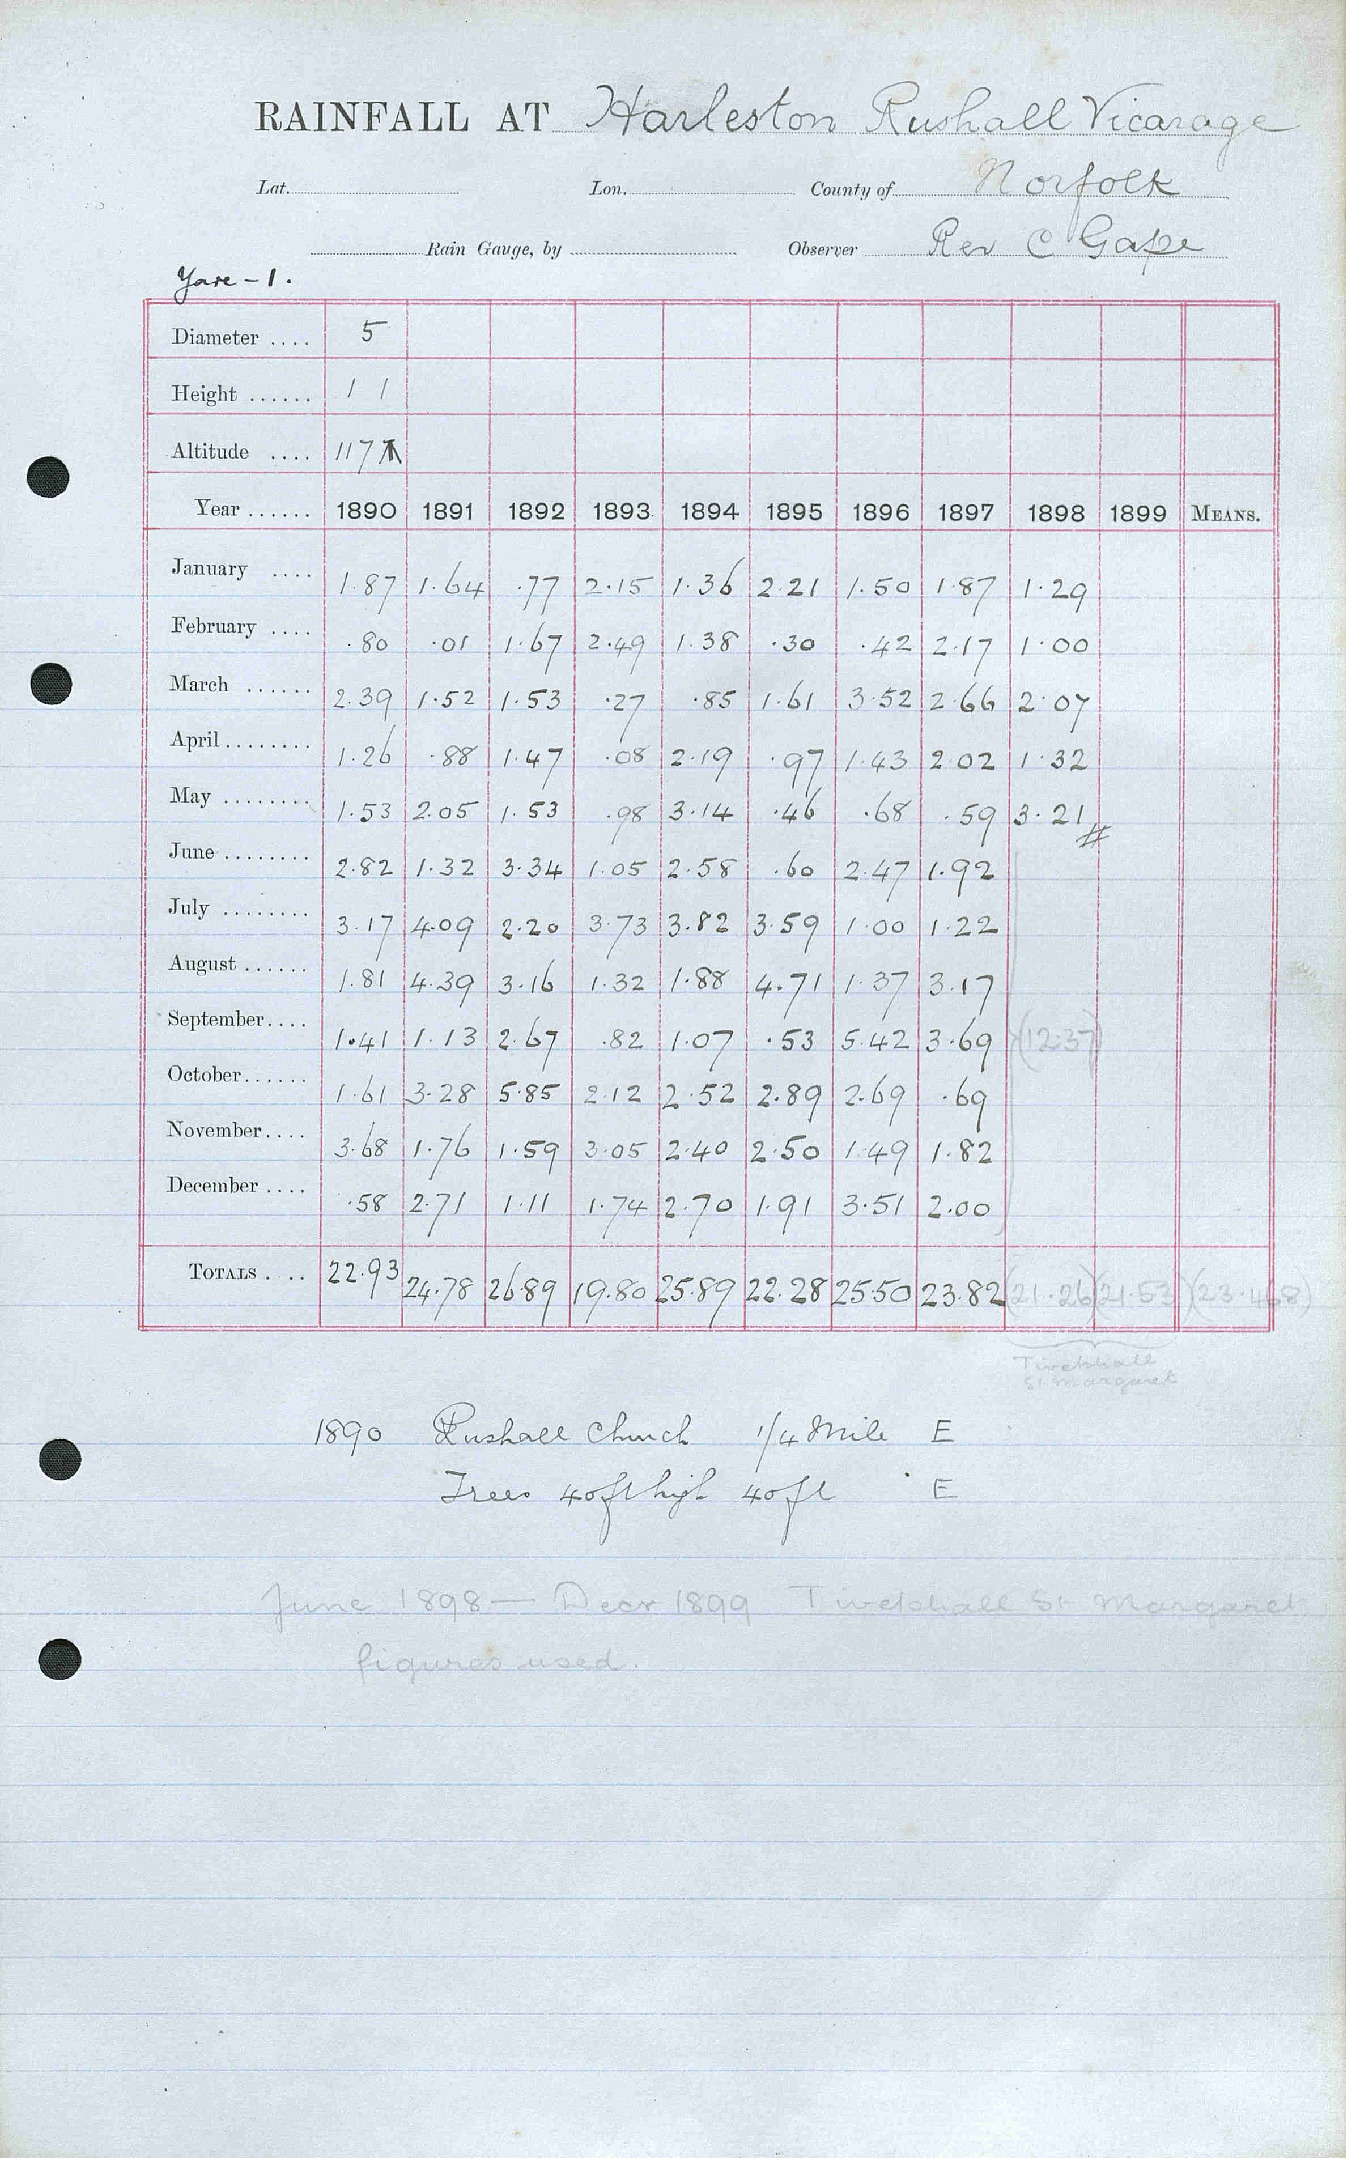 RAINFALL AT Harleston Rushall Vicarage
Lat. Lon. County of Norfolk
Rain Gauge, by Observer Rev C Gape
Yare - 1.
Diameter .... 5
Height ...... 1 1
Altitude .... 117
Year ...... 1890 1891 1892 1893 1894 1895 1896 1897 1898 1899 MEANS.
January .... 1.87 1.64 .77 2.15 1.36 2.21 1.50 1.87 1.29
February .... .80 .01 1.67 2.49 1.38 .30 .42 2.17 1.00
March ...... 2.39 1.52 1.53 .27 .85 1.61 3.52 2.66 2.07
April ........ 1.26 .88 1.47 .08 2.19 .97 1.43 2.02 1.32
May ........ 1.53 2.05 1.53 .98 3.14 .46 .68 .59 3.21 #
June ........ 2.82 1.32 3.34 1.05 2.58 .60 2.47 1.92
July ........ 3.17 4.09 2.20 3.73 3.82 3.59 1.00 1.22
August ...... 1.81 4.39 3.16 1.32 1.88 4.71 1.37 3.17
September.... 1.41 1.13 2.67 .82 1.07 .53 5.42 3.69 (12.37)
October...... 1.61 3.28 5.85 2.12 2.52 2.89 2.69 .69
November.... 3.68 1.76 1.59 3.05 2.40 2.50 1.49 1.82
December .... .58 2.71 1.11 1.74 2.70 1.91 3.51 2.00
TOTALS . .. 22.93 24.78 26.89 19.80 25.89 22.28 25.50 23.82 (21.26) (21.53) (23.468)
Tivetshall
St. Margaret
1890 Rushall Church 1/4 Mile E
Trees 40ft high 40ft E
June 1898 - Decr 1899 Tivetshall St. Margaret
figures used.